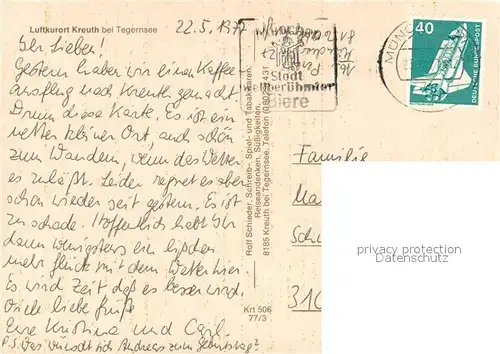 Luftkurort Kreuth bei Tegernsee
22.5.1977
Ihr Lieben!
Gestern haben wir einen Kaffee-
ausflug nach Kreuth gemacht.
Drum diese Karte. Es ist ein
netter kleiner Ort, auch schön
zum Wandern, wenn das Wetter
es zuläßt. Leider regnet es aber
schon wieder seit gestern. Es ist
zu schade. Hoffentlich habt Ihr
dann wenigstens ein bißchen
mehr Glück mit dem Wetter hier.
Es wird Zeit daß es besser wird.
Viele liebe Grüße
Eure Kristina und
P.S. Was wünscht sich Andreas zum Geburtstag?
Rolf Schieder, Schreib-, Spiel- und Tabakwaren,
Reiseandenken, Süßigkeiten,
8185 Kreuth bei Tegernsee, Telefon
Krt 506
77/3
Stadt
weltberühmter
Biere
MÜNC
40
DEUTSCHE BUNDESPOST
Familie
Ma
Sch
310
privacy protection
COPYRIGHTED MATERIAL